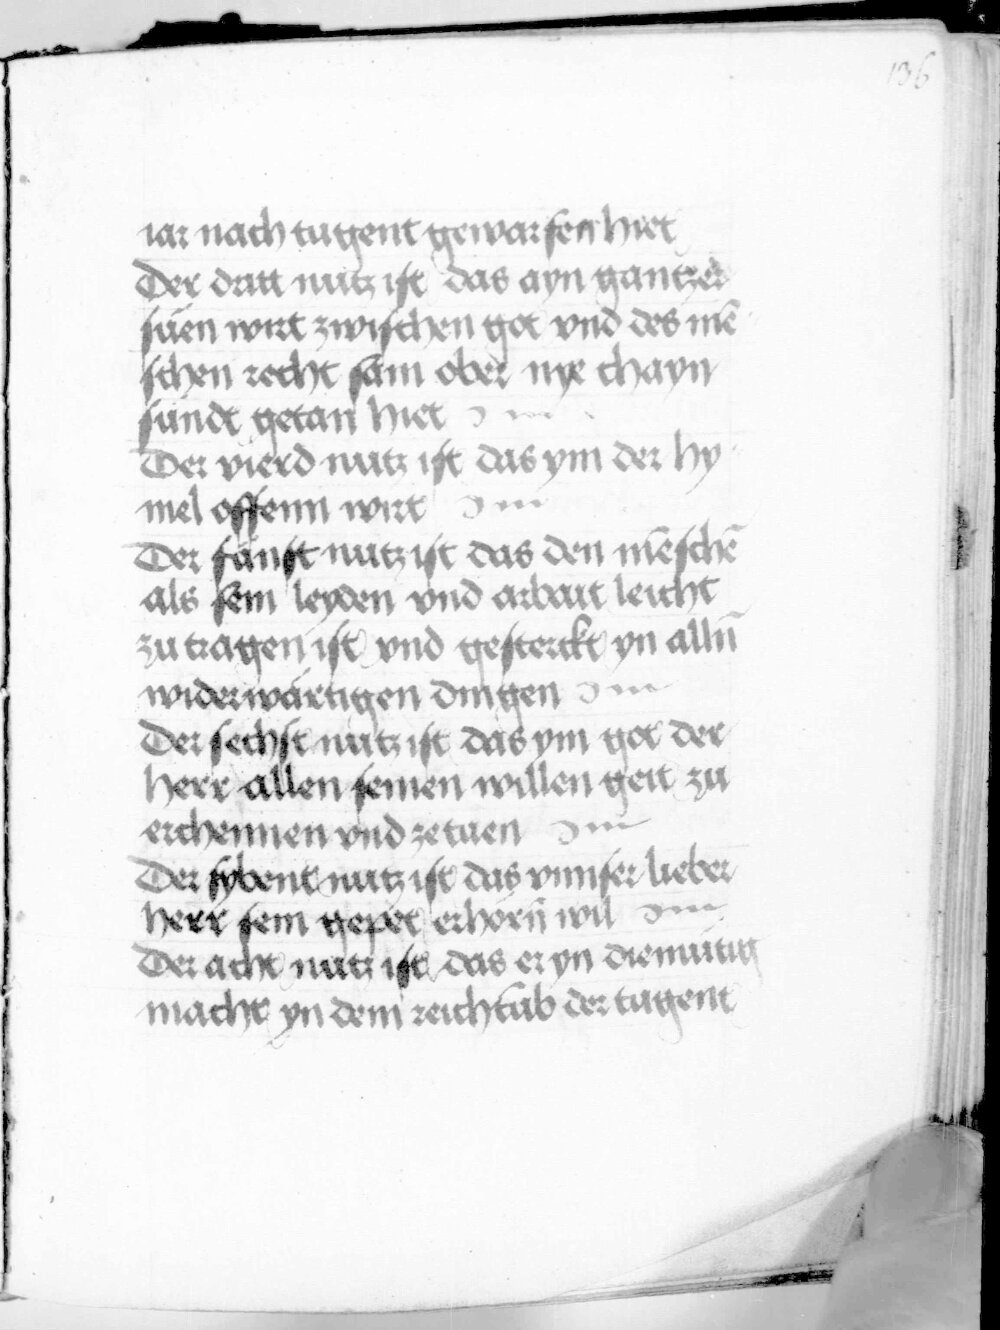 136
iar nach tugent gewarfen hiet
Der dritt nutz ist das ayn gantzer
süen wirt zwischen got vnd des mē
schen recht sam ober nye chayn
sundt getan hiet
Der vierd nutz ist das ym der hy
mel offenn wirt
Der fünft nutz ist das den mēschē
als sein leyden vnd arbait leicht
zu tragen ist vnd gesterckt yn allñ
widerwärtigen dingen
Der sechst nutz ist das ym got der
herr allen seinen willen geit zu
erchennen vnd ze tuen
Der sybent nutz ist das vnnser lieber
herr sein gepet erhörñ wil
Der acht nutz ist das er yn diemütig
macht yn dem reichtüb der tugent